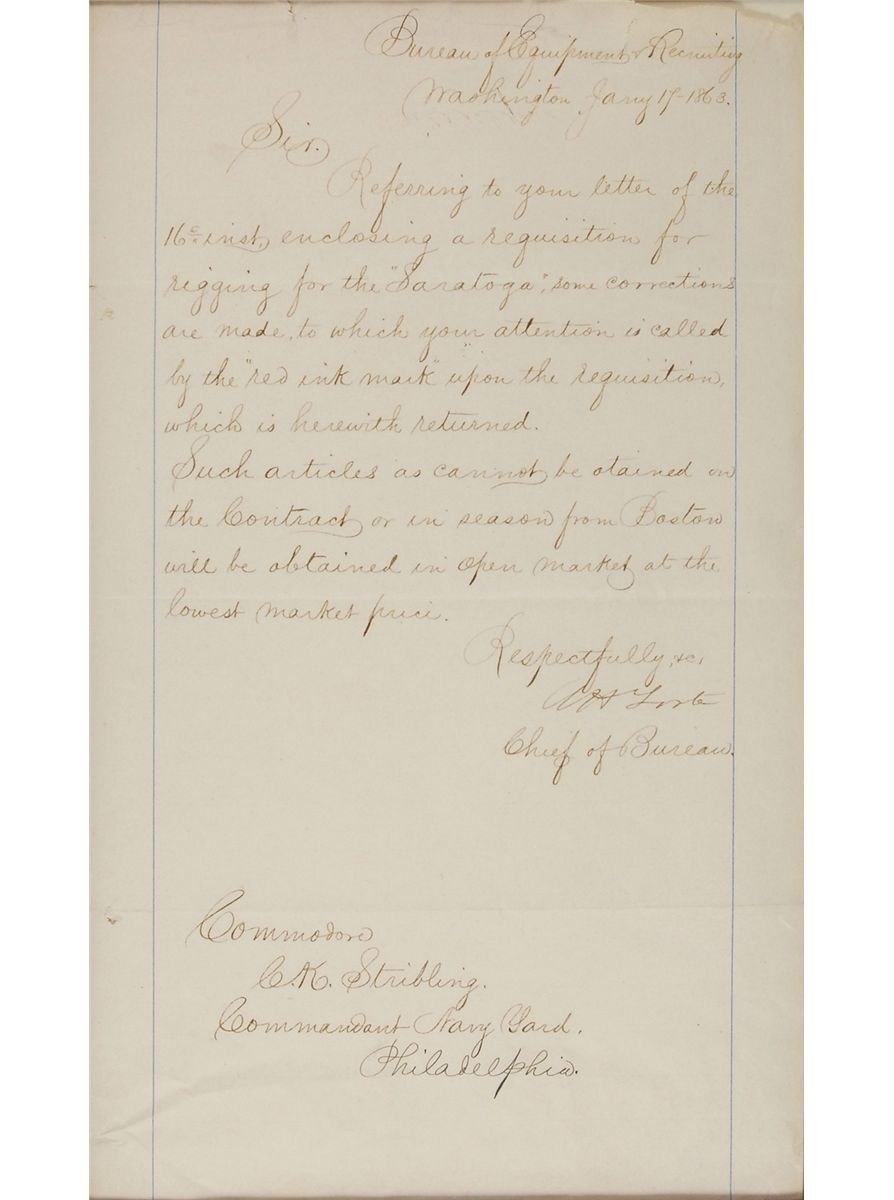 Bureau of Equipment & Recruiting
Washington Jany 17-1863.
Sir.
Referring to your letter of the
16th inst, enclosing a requisition for
rigging for the "Saratoga", some corrections
are made, to which your attention is called
by the "red ink mark" upon the requisition,
which is herewith returned.
Such articles as cannot be otained on
the Contract or in season from Boston
will be obtained in open market at the
lowest market price.
Respectfully, &c,
A H Foote
Chief of Bureau.
Commodore
C. K. Stribling.
Commandant Navy Yard.
Philadelphia.